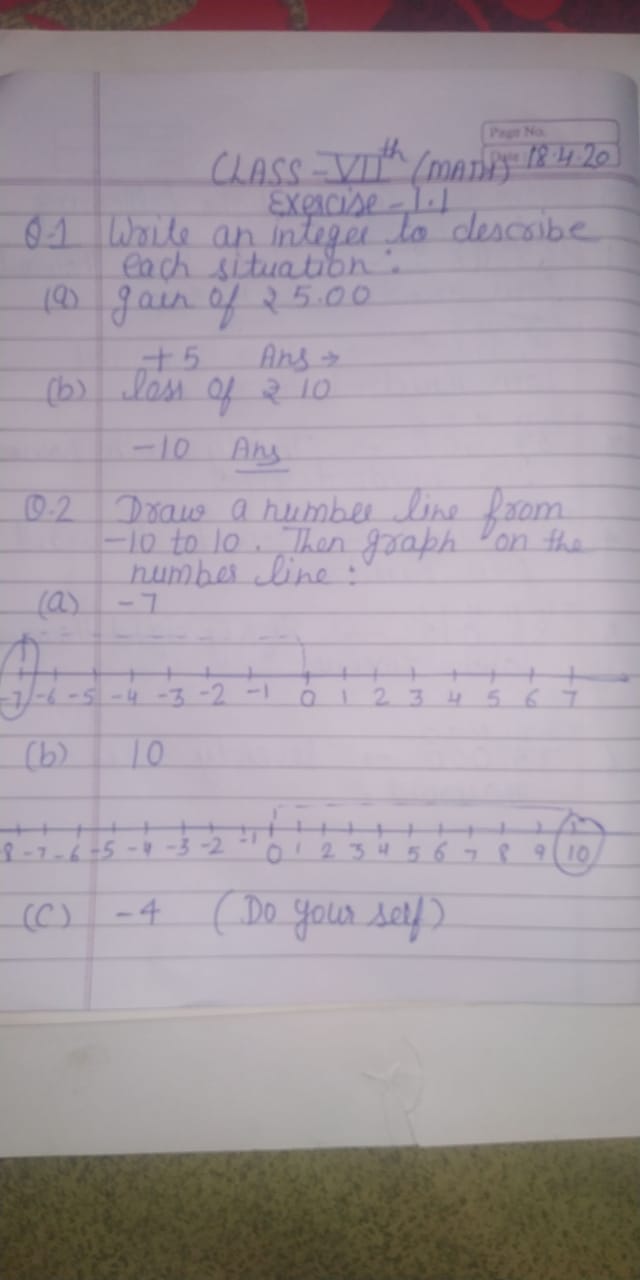 Page No.
Date 18.4.20
CLASS - VIIth (MATH)
Exercise - 1.1
Q.1 Write an integer to describe
each situation :
(a) gain of ₹ 5.00
+5 Ans →
(b) loss of ₹ 10
-10 Ans
Q.2 Draw a number line from
-10 to 10. Then graph on the
number line :
(a) -7
-7 -6 -5 -4 -3 -2 -1 0 1 2 3 4 5 6 7
(b) 10
-8 -7 -6 -5 -4 -3 -2 -1 0 1 2 3 4 5 6 7 8 9 10
(C) -4 (Do your self)